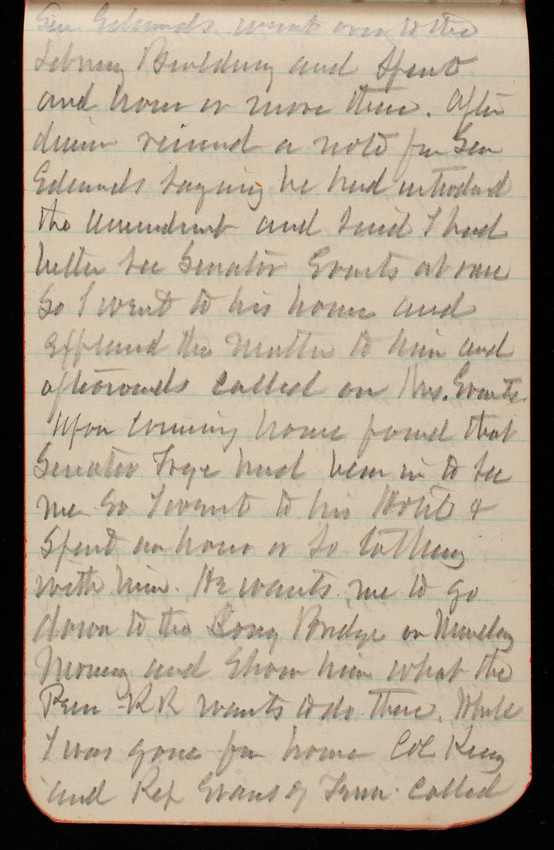 Gen Edmunds went over to the
Library Building and Spent
and hour or more there. After
dinner received a note fm Sen
Edmunds saying he had introduced
the Amendment and said I had
better see Senator Evarts at once
So I went to his home and
explained the matter to him and
afterwards called on Mrs. Evarts.
Upon coming home found that
Senator Frye had been in to see
me so I went to his Hotel &
Spent an hour or so talking
with him. He wants me to go
down to the Long Bridge on Monday
Morning and Show him what the
Penn - RR wants to do there. While
I was gone fm home Col King
and Rep Evans of Tenn. called